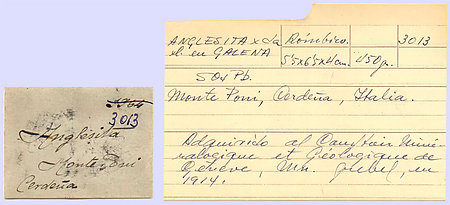 3013
Anglesita
Monte Poni
Cerdeña
ANGLESITA x
xl. en GALENA
Rómbico.
3013
450g.
SO4 Pb.
Monte Poni, Cerdeña, Italia.
Adquirido al Comptoir Miné-
ralogique et Géologique de
Genève, Mn. Grebel, en
1914.